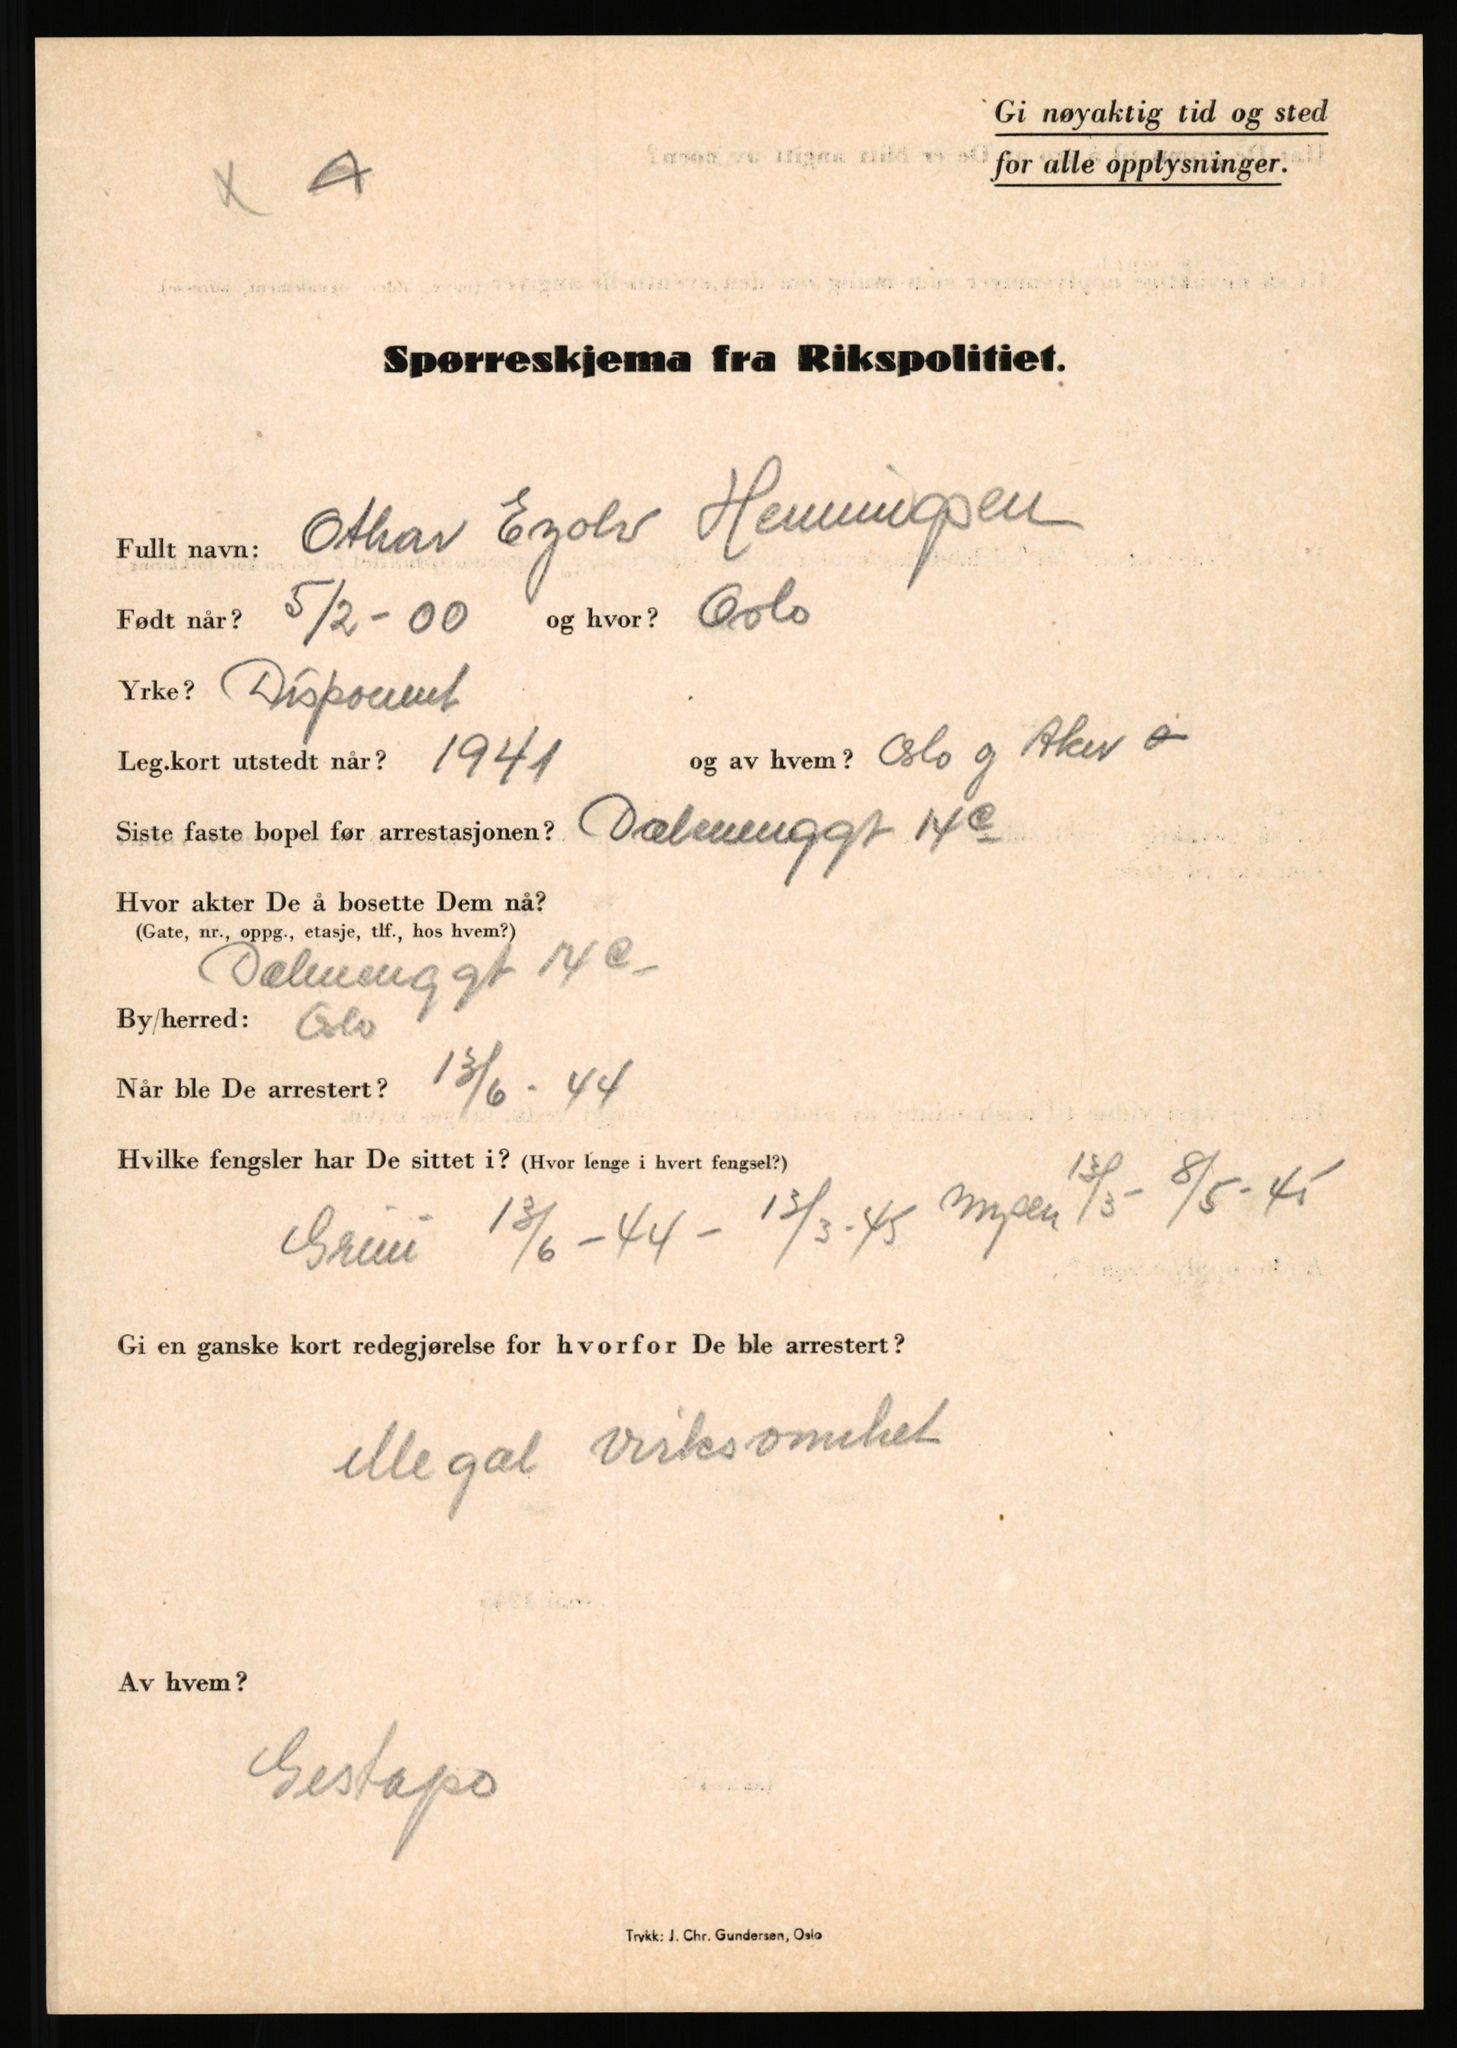 Gi nøyaktig tid og sted
for alle opplysninger.
x A
Spørreskjema fra Rikspolitiet.
Fullt navn: Othar Eyolv Henningsen
Født når? 5/2-00 og hvor? Oslo
Yrke? Disponent
Leg.kort utstedt når? 1941 og av hvem? Oslo og Aker
Siste faste bopel før arrestasjonen? Dælenenggt 14c
Hvor akter De å bosette Dem nå?
(Gate, nr., oppg., etasje, tlf., hos hvem?)
Dælenenggt 14c
By/herred: Oslo
Når ble De arrestert? 13/6-44
Hvilke fengsler har De sittet i? (Hvor lenge i hvert fengsel?)
Grini 13/6-44 - 13/3-45 Mysen 13/3 - 8/5-45
Gi en ganske kort redegjørelse for hvorfor De ble arrestert?
illegal virksomhet
Av hvem?
Gestapo
Trykk: J. Chr. Gundersen, Oslo